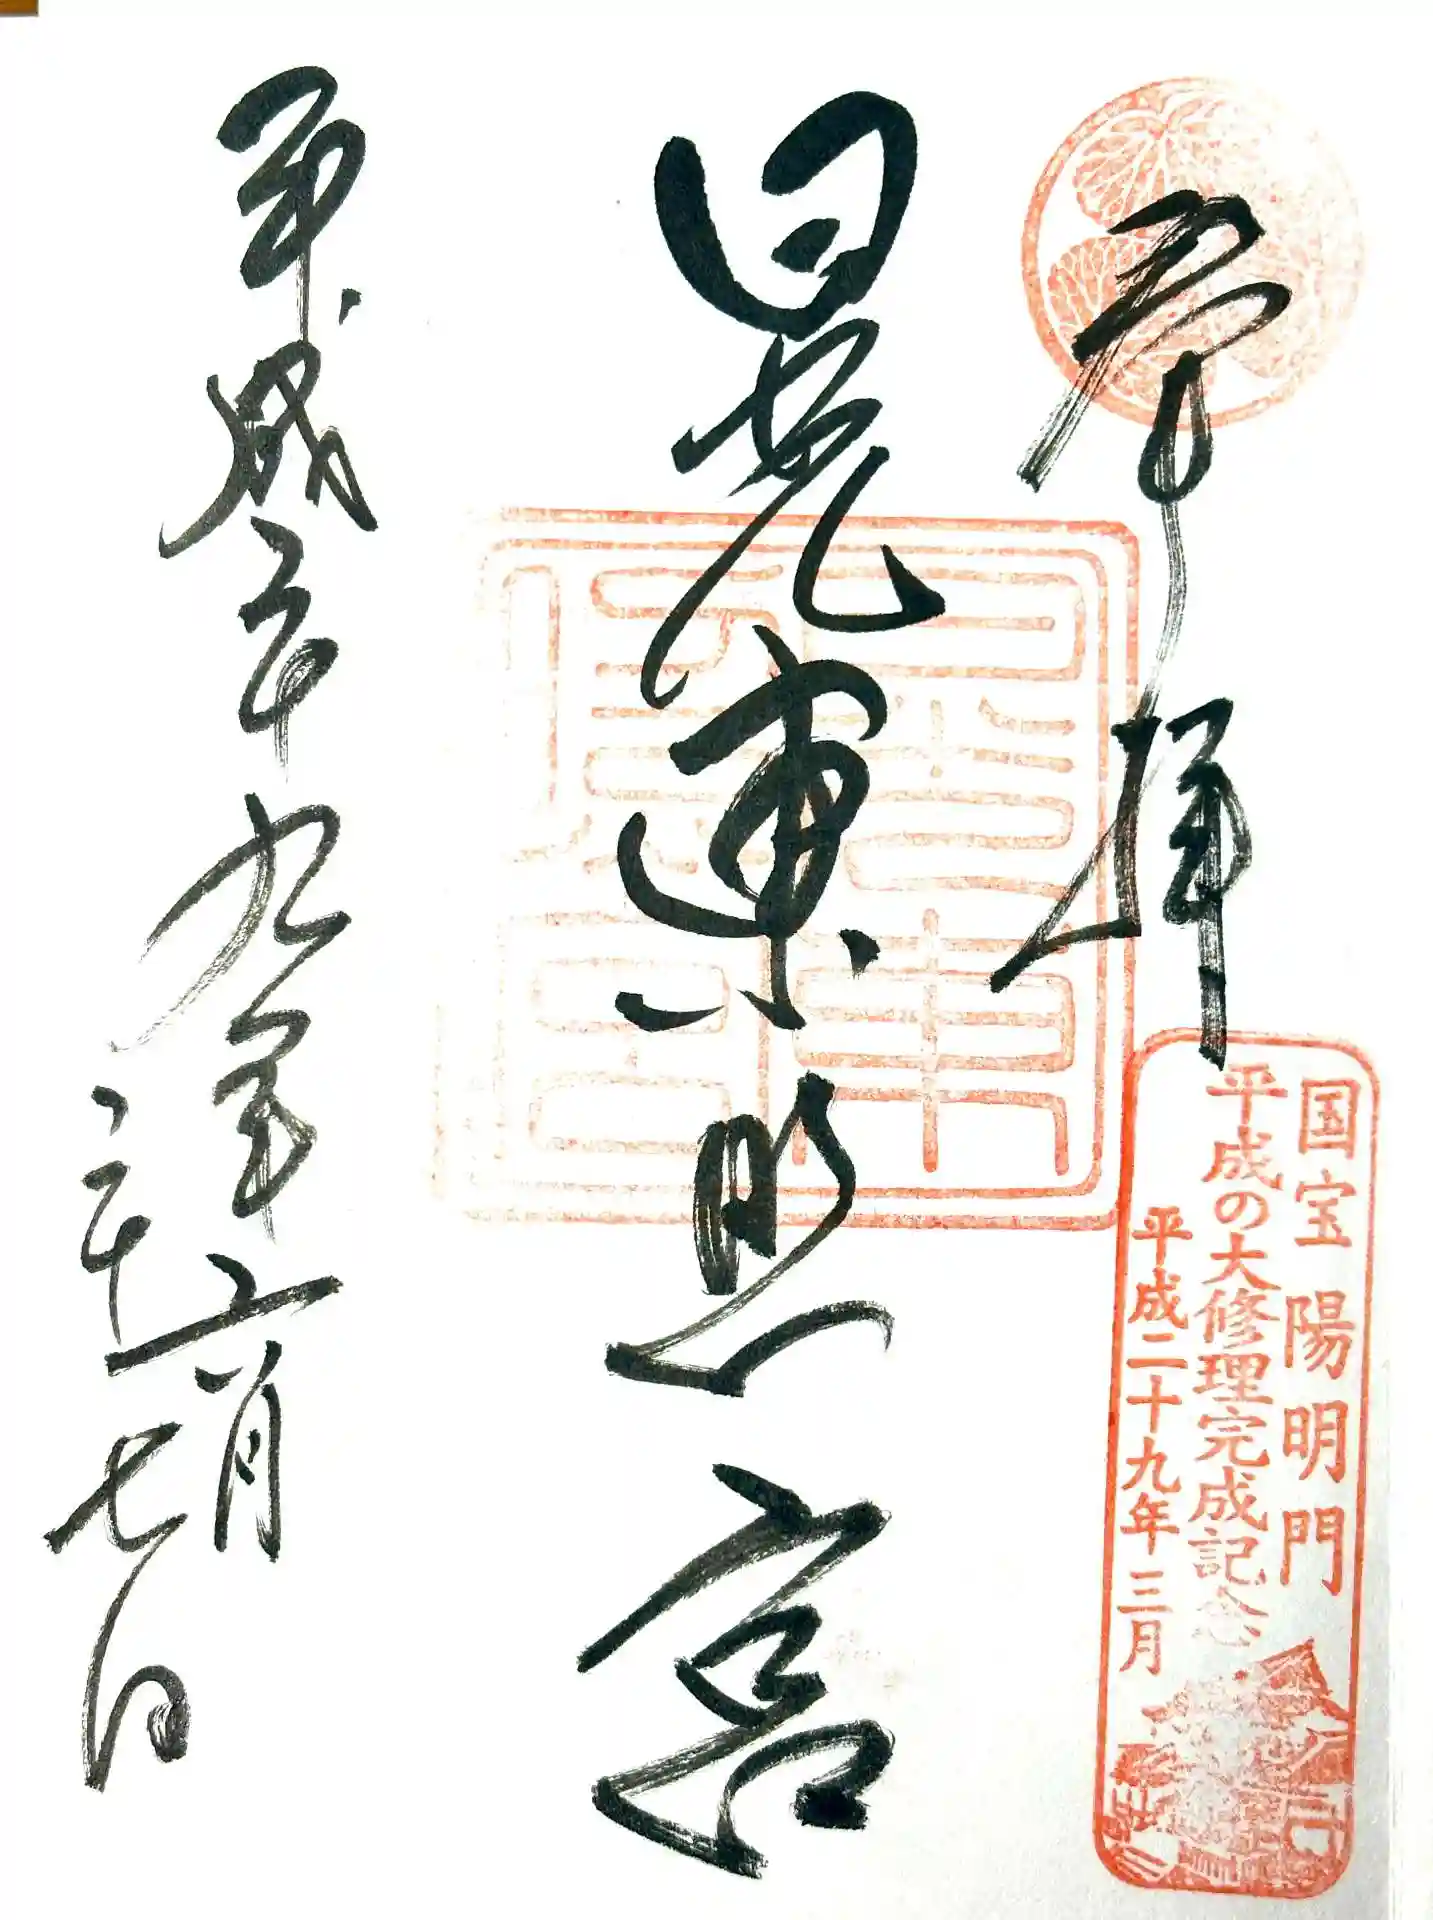 奉拝
国宝 陽明門
平成の大修理完成記念
平成二十九年三月
日光東照宮
平成二十九年六月
二十七日